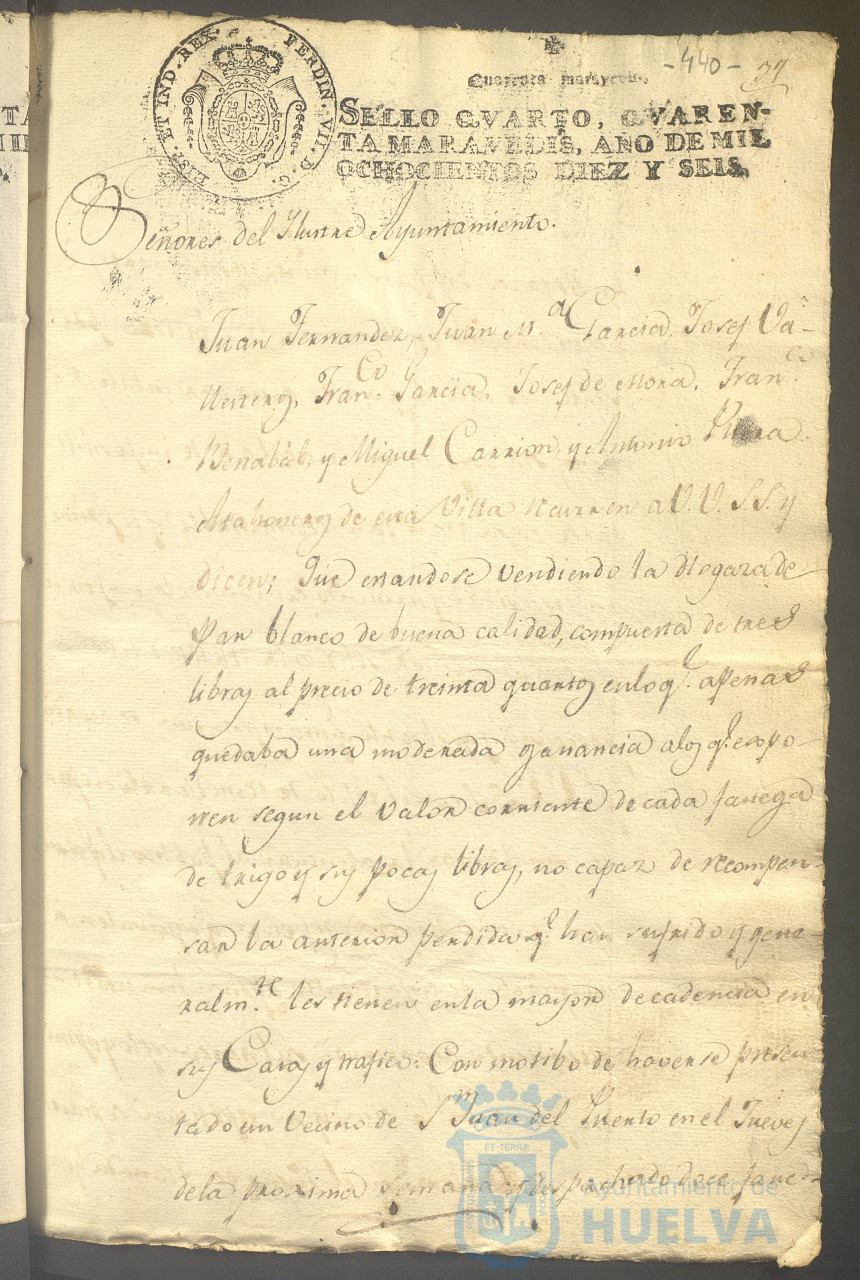 -440- 37
Quarenta maravedis.
SELLO QVARTO, QVAREN-
TA MARAVEDIS, AÑO DE MIL
OCHOCIENTOS DIEZ Y SEIS.
FERDIN. VII. D. G. HISP. ET IND. REX.
Señores del Ylustre Ayuntamiento.
Juan Fernandez, Juan M.ª Garcia, Josef Va-
llesteros, Fran.co Garcia, Josef de Mora, Fran.co
Benabál, y Miguel Carrion, y Antonio
Atahoneros de esta Villa recurren a V.V. S.S. y
dicen; Que estandose vendiendo la Hogaza de
Pan blanco de buena calidad, compuesta de tres
libras al precio de treinta quartos en lo q.e apenas
quedaba una moderada ganancia a los q.e expo-
nen segun el valor corriente de cada fanega
de trigo y sus pocas libras, no capaz de recompen-
sar la anterior perdida q.e han sufrido y gene-
ralm.te les tienen en la mayor decadencia en
sus Casas y trafico: Con motibo de haverse presen-
tado un Vecino de S.n Juan del Puerto en el Jueves
de la proxima Semana y despachado doce fane-
ET TERRÆ
Ayuntamiento de
HUELVA